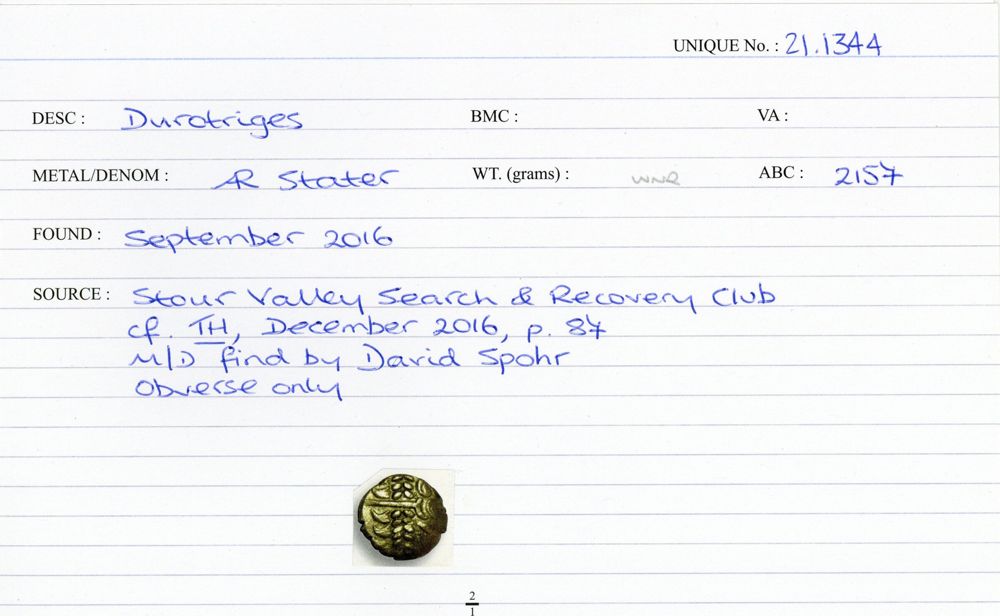 UNIQUE No. : 21.1344
DESC : Durotriges BMC : VA :
METAL/DENOM : AR Stater WT. (grams) : WNR ABC : 2157
FOUND : September 2016
SOURCE : Stour Valley Search & Recovery Club
cf. TH, December 2016, p. 87
M/D find by David Spohr
Obverse only
2
1